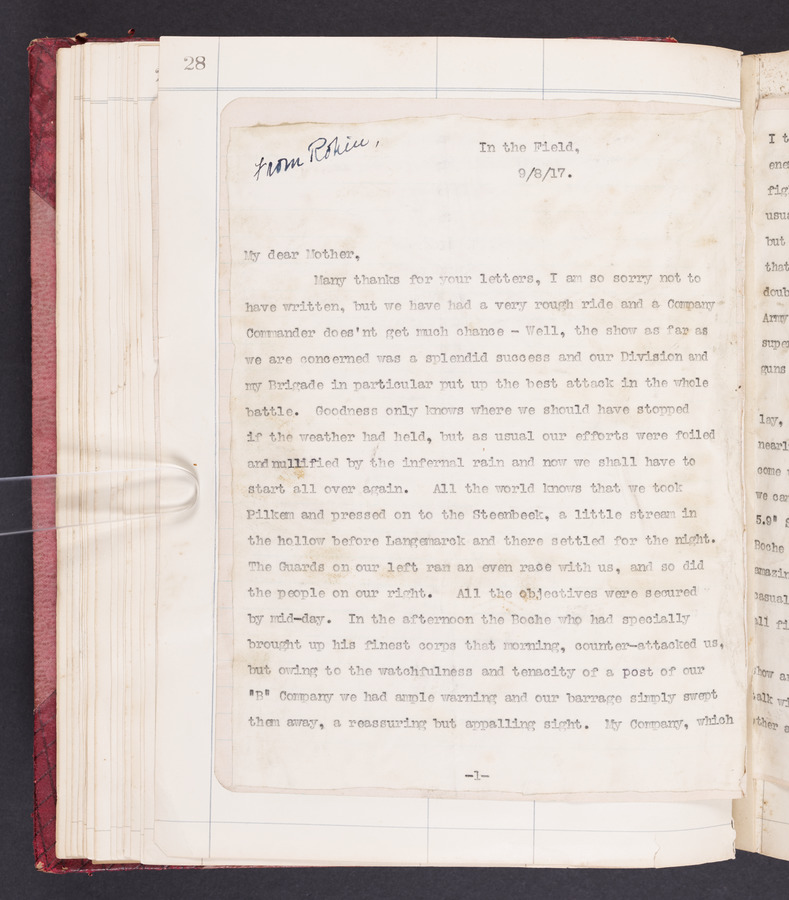 28
From Robin,
In the Field,
9/8/17.
My dear Mother,
Many thanks for your letters, I am so sorry not to
have written, but we have had a very rough ride and a Company
Commander does'nt get much chance - Well, the show as far as
we are concerned was a splendid success and our Division and
my Brigade in particular put up the best attack in the whole
battle. Goodness only knows where we should have stopped
if the weather had held, but as usual our efforts were foiled
and nullified by the infernal rain and now we shall have to
start all over again. All the world knows that we took
Pilkem and pressed on to the Steenbeek, a little stream in
the hollow before Langemarck and there settled for the night.
The Guards on our left ran an even race with us, and so did
the people on our right. All the objectives were secured
by mid-day. In the afternoon the Boche who had specially
brought up his finest corps that morning, counter-attacked us,
but owing to the watchfulness and tenacity of a post of our
"B" Company we had ample warning and our barrage simply swept
them away, a reassuring but appalling sight. My Company, which
-1-
I t
fig
usua
but
that
doub
Army
super
guns
lay,
nearl
come
we can
5.9"
Boche
amazin
casual
all fi
how a
talk wi
other s